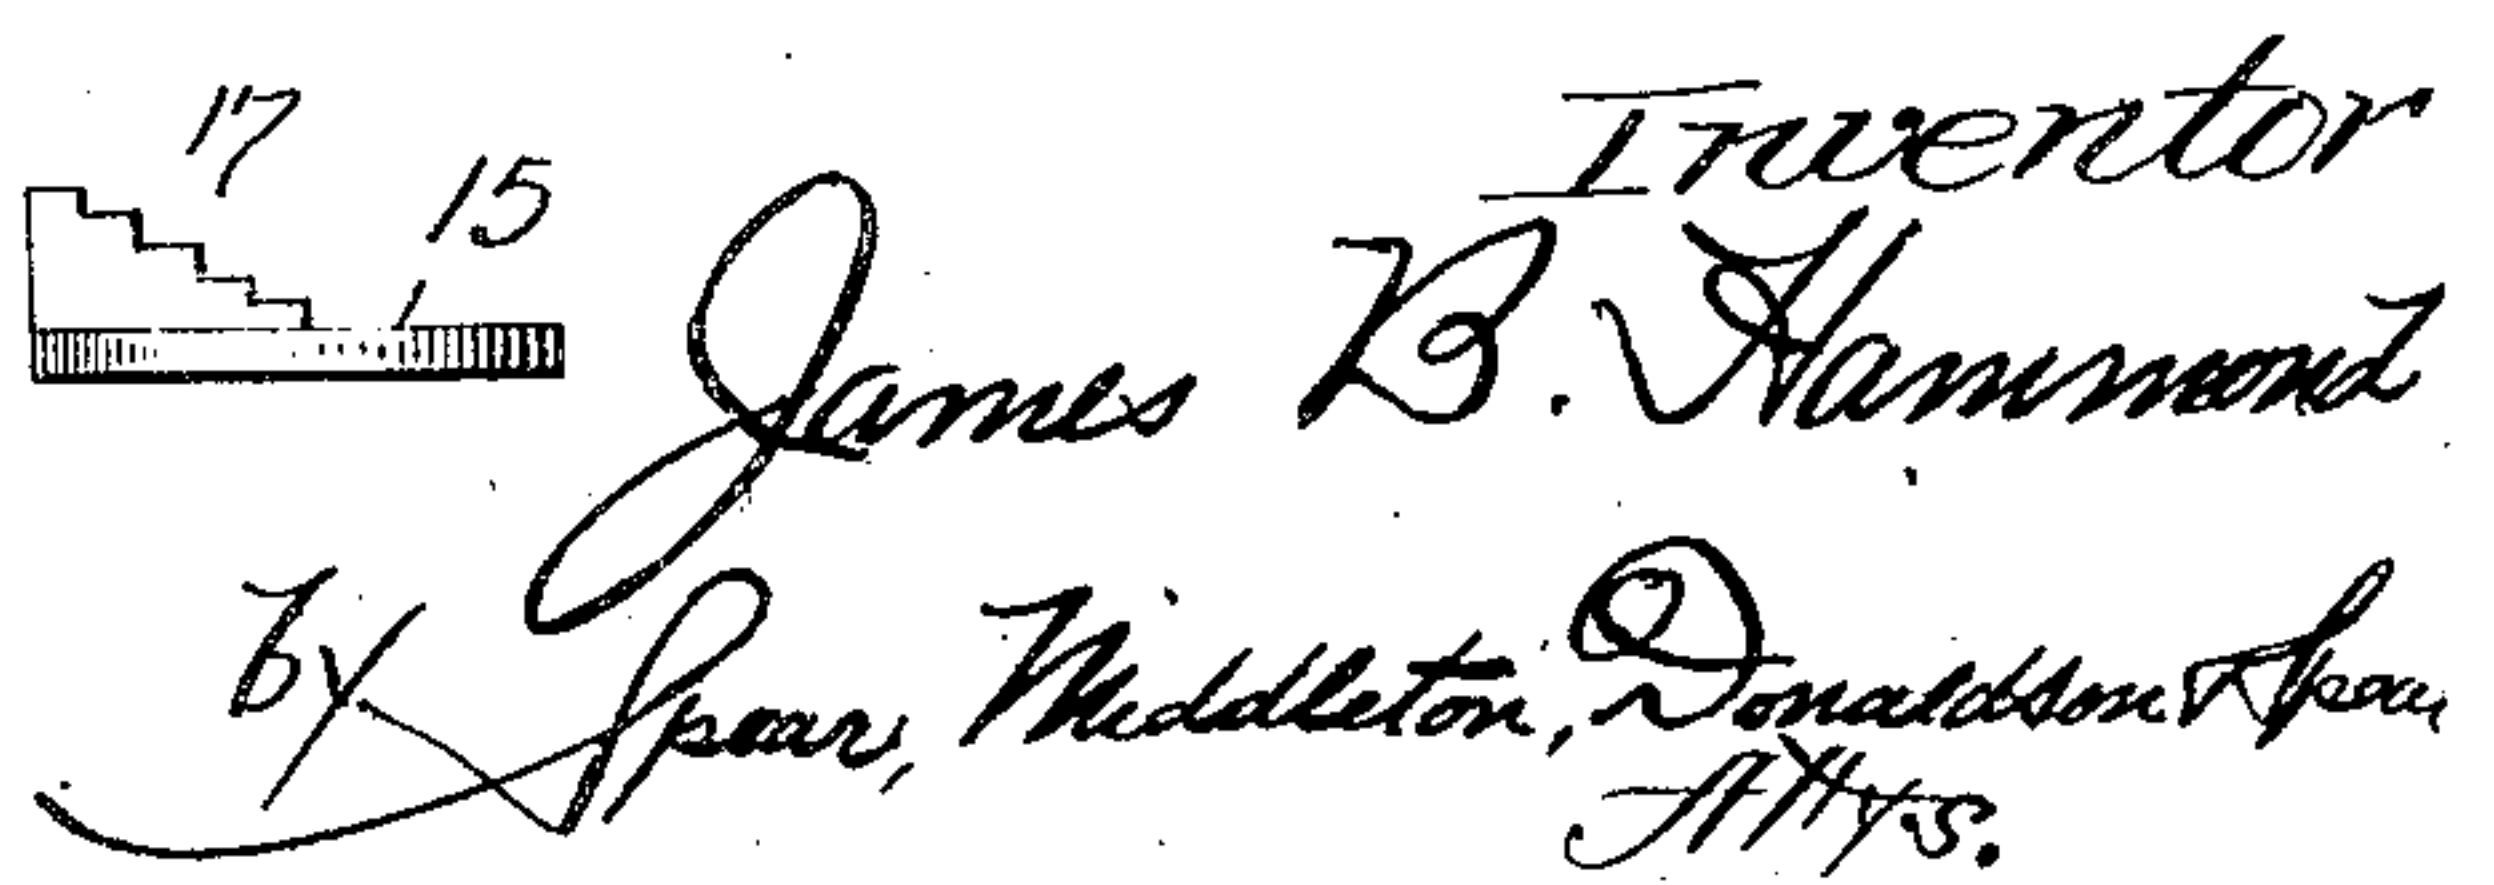 17
15
Inventor
James B. Hammond
by Spear, Middleton, Donaldson & Spear
Attys.